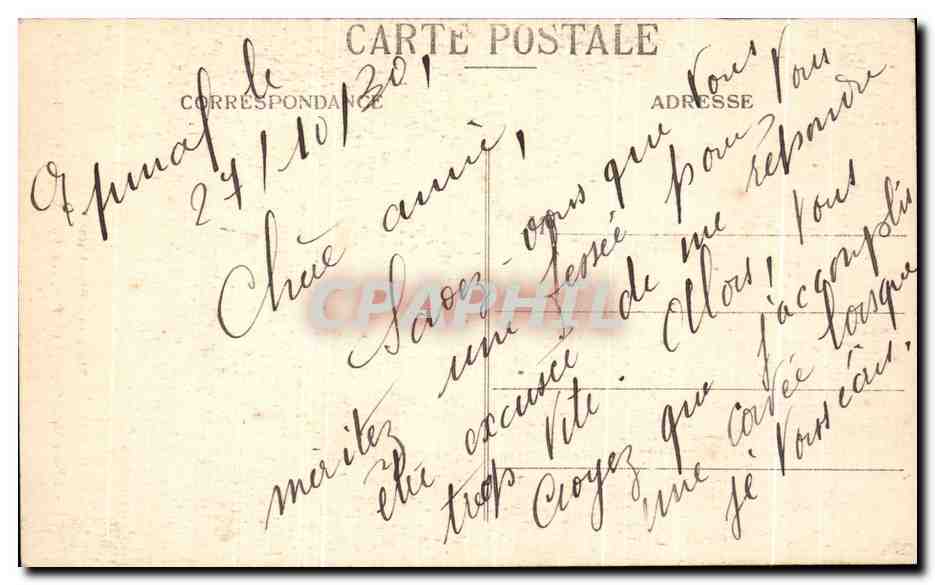 CARTE POSTALE
CORRESPONDANCE
ADRESSE
Epinal le
27/10/30,
Chère amie,
Savez-vous que vous
méritez une fessée pour vous
être excusée de me répondre
trop vite. Alors, vous
croyez que j'accomplis
une corvée lorsque
je vous écris.
CPAPHIL